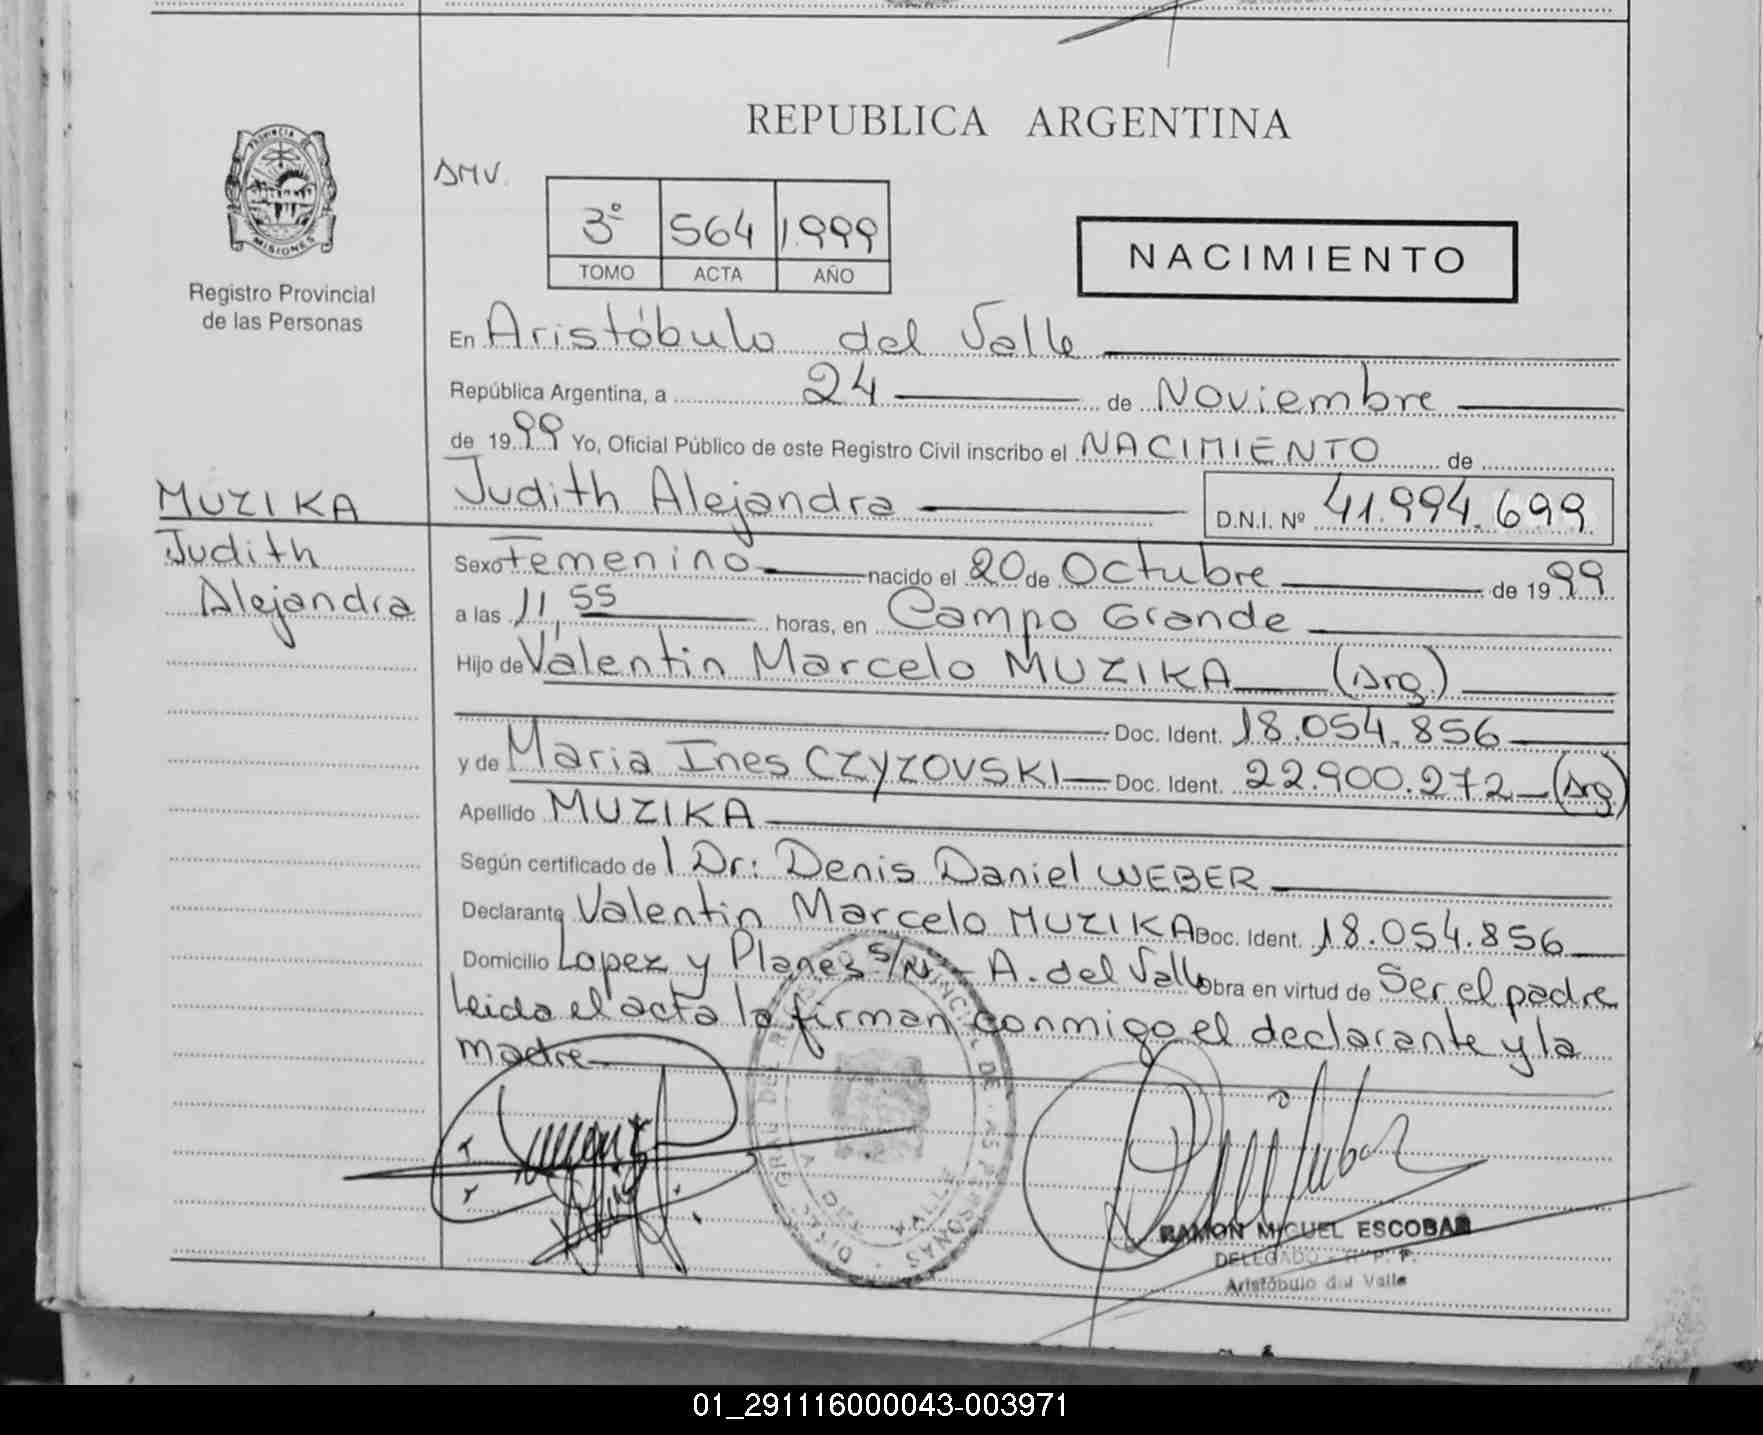 REPUBLICA ARGENTINA
PROVINCIA
MISIONES
Registro Provincial
de las Personas
3° 564 1.999
TOMO ACTA AÑO
NACIMIENTO
En Aristóbulo del Valle
República Argentina, a 24 de Noviembre
de 19 99 Yo, Oficial Público de este Registro Civil inscribo el NACIMIENTO de
MUZIKA
Judith
Alejandra
Judith Alejandra D.N.I. Nº 41.994.699
Sexo Femenino nacido el 20 de Octubre de 19 99
a las 11,55 horas, en Campo Grande
Hijo de Valentin Marcelo MUZIKA (Arg.)
Doc. Ident. 18.054.856
y de Maria Ines CZYZOVSKI Doc. Ident. 22.900.272 (Arg)
Apellido MUZIKA
Según certificado de l Dr: Denis Daniel WEBER
Declarante Valentin Marcelo MUZIKA Doc. Ident. 18.054.856
Domicilio Lopez y Planes s/N - A. del Valle Obra en virtud de Ser el padre
Leida el acta la firman conmigo el declarante y la
madre
RAMON MIGUEL ESCOBAR
DELEGADO
Aristóbulo del Valle
01_291116000043-003971